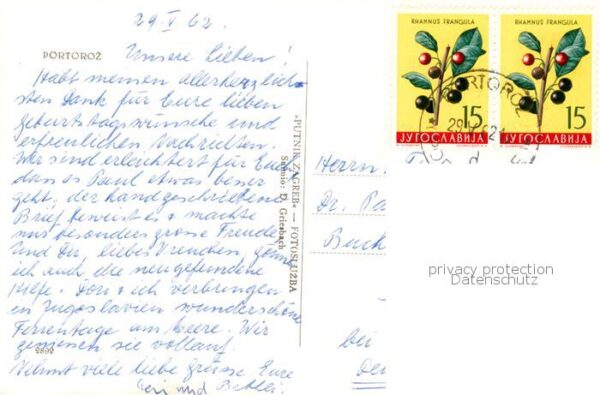 29. V 62.
PORTOROŽ
Unsere Lieben!
Habt meinen allerherzlich-
sten Dank für Eure lieben
Geburtstagswünsche und
erfreulichen Nachrichten.
Wir sind erleichtert für Euch
dass es Paul etwas besser
geht, der handgeschriebene
Brief beweist es & machte
uns besonders grosse Freude
Und Dir, liebes Vrenchen, gönne
ich auch die neugefundene
Hilfe. Don & ich verbringen
in Jugoslavien wunderschöne
Ferientage am Meere. Wir
geniessen sie vollauf.
2692
Nehmt viele liebe Grüsse Eure
und
»PUTNIK ZAGREB« — FOTOSLUŽBA
Snimio: D. Griesbach
RHAMNUS FRANGULA
15
ЈУГОСЛАВИЈА
RHAMNUS FRANGULA
15
ЈУГОСЛАВИЈА
PORTOROŽ
29.V.62
Herrn
Dr. Pa
Buch
bei
privacy protection
Datenschutz